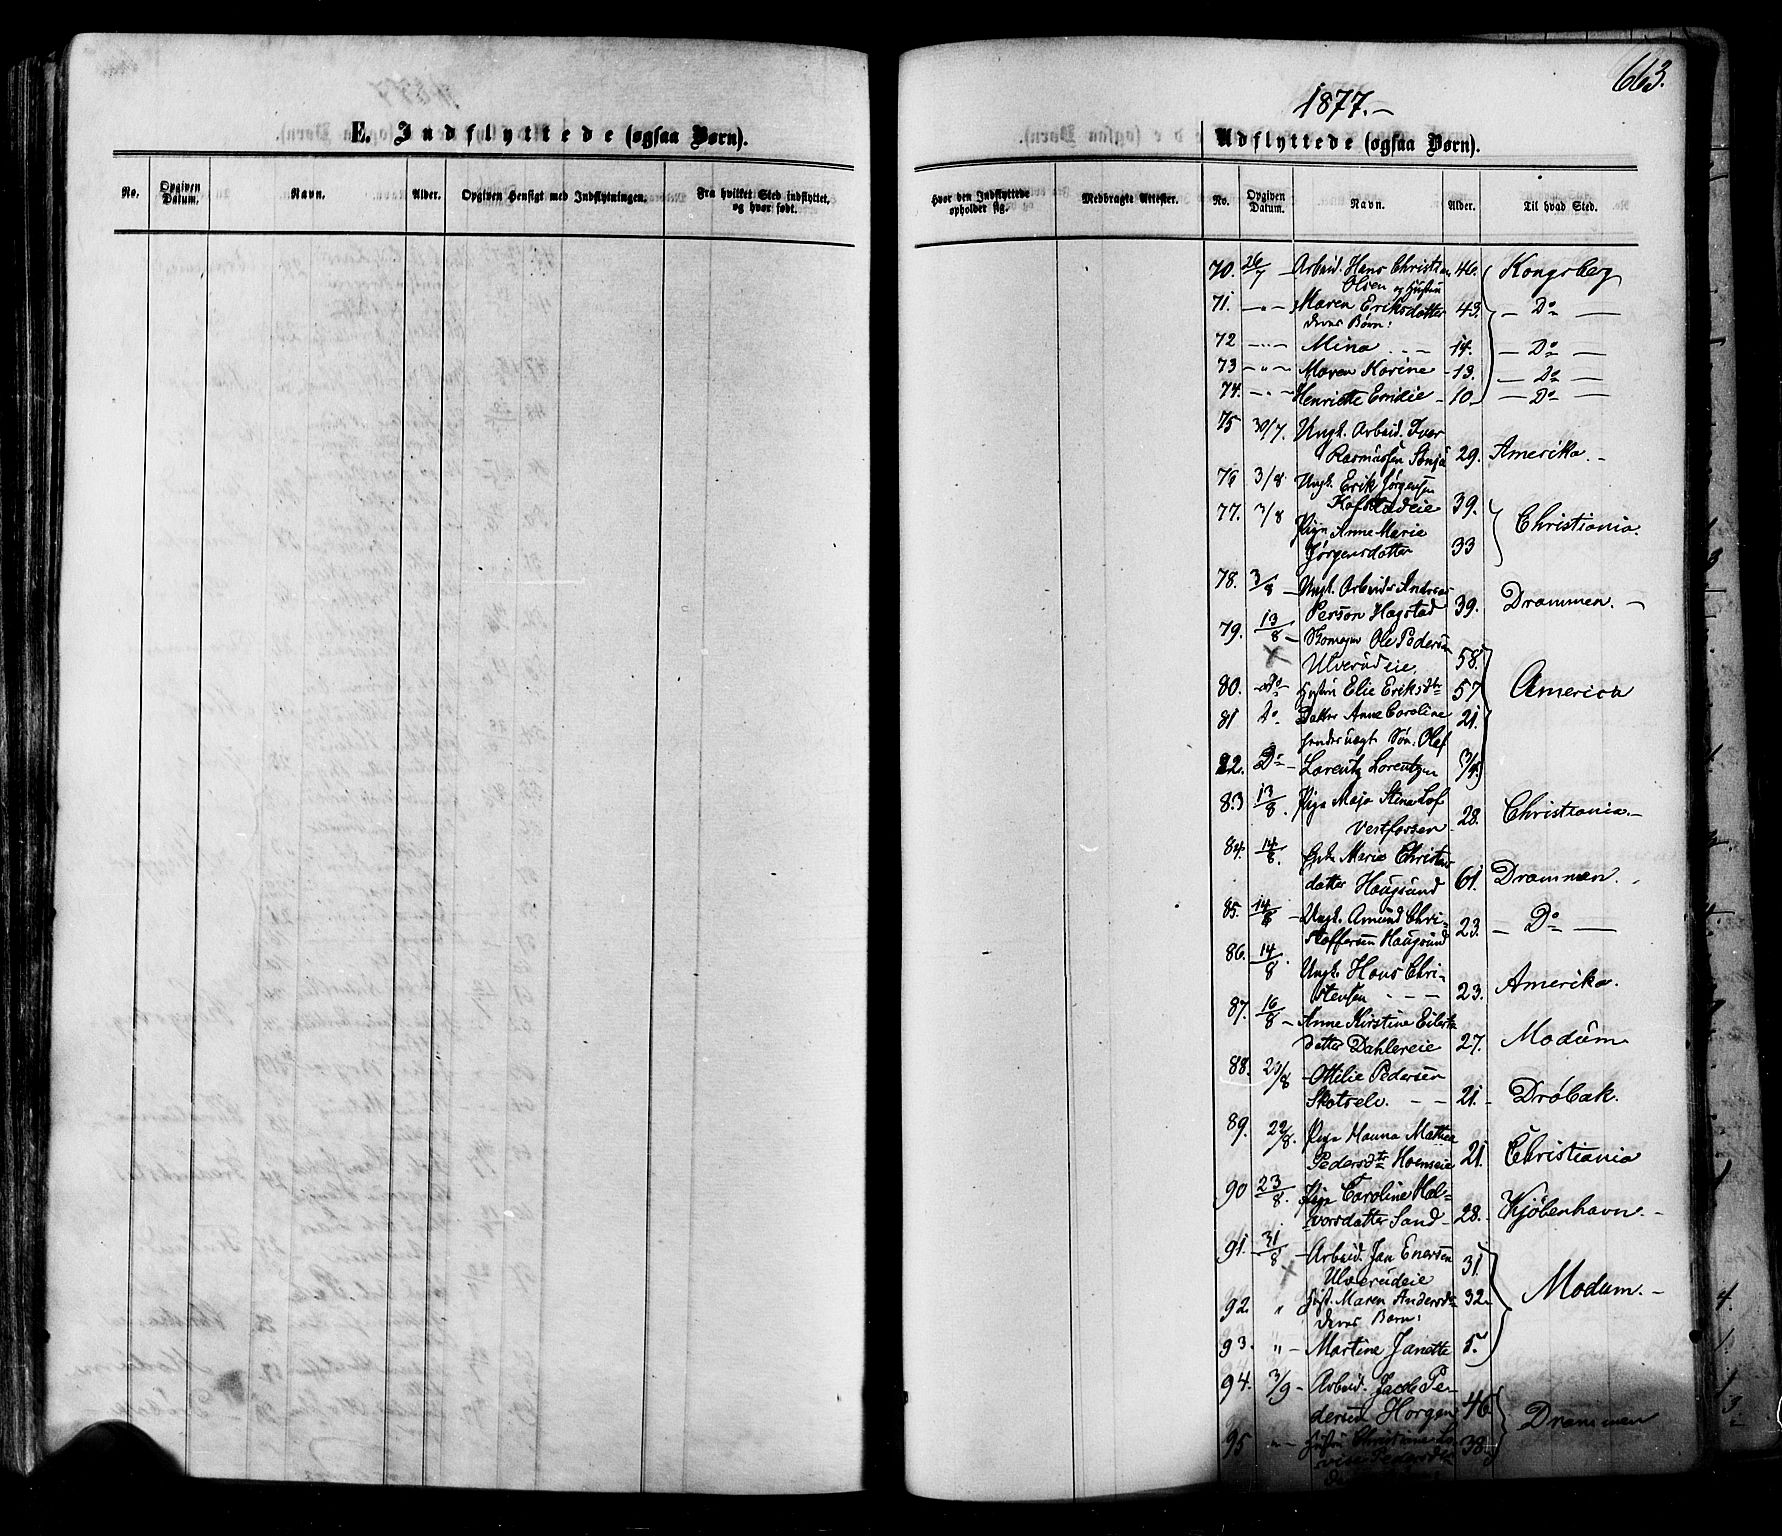 663.
1877.-
E. Indflyttede (ogsaa Børn).
No. Opgiven Datum. Navn. Alder. Opgiven Hensigt med Indflytningen. Fra hvilket Sted indflyttet, og hvor født.
Udflyttede (ogsaa Børn).
Hvor den Indflyttede opholder sig. Medbragte Attester. No. Opgiven Datum. Navn. Alder. Til hvad Sted.
70. 26/7 Arbeid. Hans Christian 46. Kongsberg
Olsen og Hustru
71. — " — Maren Eriksdatter 43. — Do —
deres Børn:
72 — " — Mina - - - 14. — Do —
73 — " — Maren Karine - 13. — Do —
74. — " — Henriette Emilie - 10. — Do —
75 30/7. Ungk. Arbeid. Iver
Rasmussen 29. Amerika. -
76 3/8. Ungk. Erik Jørgensen
Kofstadeie 39.
77. 3/8 Pige Anne Marie Christiania.
Jørgensdatter 33
78. 3/8 — Ungk. Arbeids. Andreas
Person Hagstad 39. Drammen. -
79. 13/8 — Ole Pedersen
Ulverudeie 58.
80. Do Hustru Elie Eriksdtr 57 America
81 Do Datter Anne Caroline 21.
hendes uægt. Søn: Olaf
82. Do — Lorentz Lorentzen 3/4.
83 13/8. Pige Maja Stina Lof
Vestfossen 28. Christiania.-
84. 14/8. Enke Marie Christens
datter Haugsund 61. Drammen.
85. 14/8 — Ungk. Amund Chri-
stoffersen Haugsund 23. — Do —
86. 14/8. Ungk. Hans Chri-
stensen - - - 23. Amerika.
87. 16/8 — Anne Kirstine Eilerts
datter Dahlereie 27. Modum
88. 23/8 — Ottilie Pedersen
Skotselv. - - 21. Drøbak.
89. 22/8. Pige Hanna Mathea
Pedersdtr Hoenseie 21. Christiania
90 23/8. Pige Caroline Hal-
vorsdatter Sand 28. Kjøbenhavn. -
91. 31/8 — Arbeid. Jan Enersen 31.
Ulverudeie
92. " Hust. Maren Andersdtr 32. Modum. -
deres Barn:
93. " — Martine Janette 5.
94. 3/9 — Arbeid. Jacob Pe-
dersen Horgen 46. Drammen
95 " — Hustru Christine Lo- 38.
vise Pedersdtr